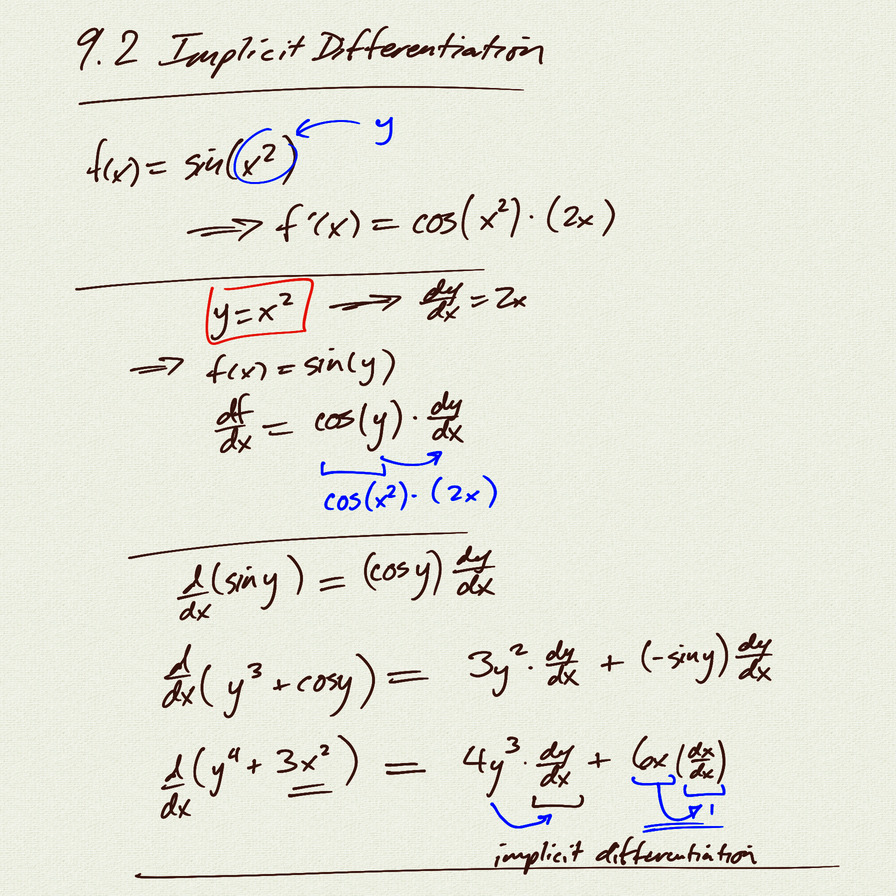 9.2 Implicit Differentiation
f(x) = sin(x²) ← y
⟹ f'(x) = cos(x²) · (2x)
y = x² ⟹ dy/dx = 2x
⟹ f(x) = sin(y)
df/dx = cos(y) · dy/dx
cos(x²) · (2x)
d/dx (sin y) = (cos y) dy/dx
d/dx (y³ + cos y) = 3y² · dy/dx + (-sin y) dy/dx
d/dx (y⁴ + 3x²) = 4y³ · dy/dx + 6x (dx/dx)
1
implicit differentiation